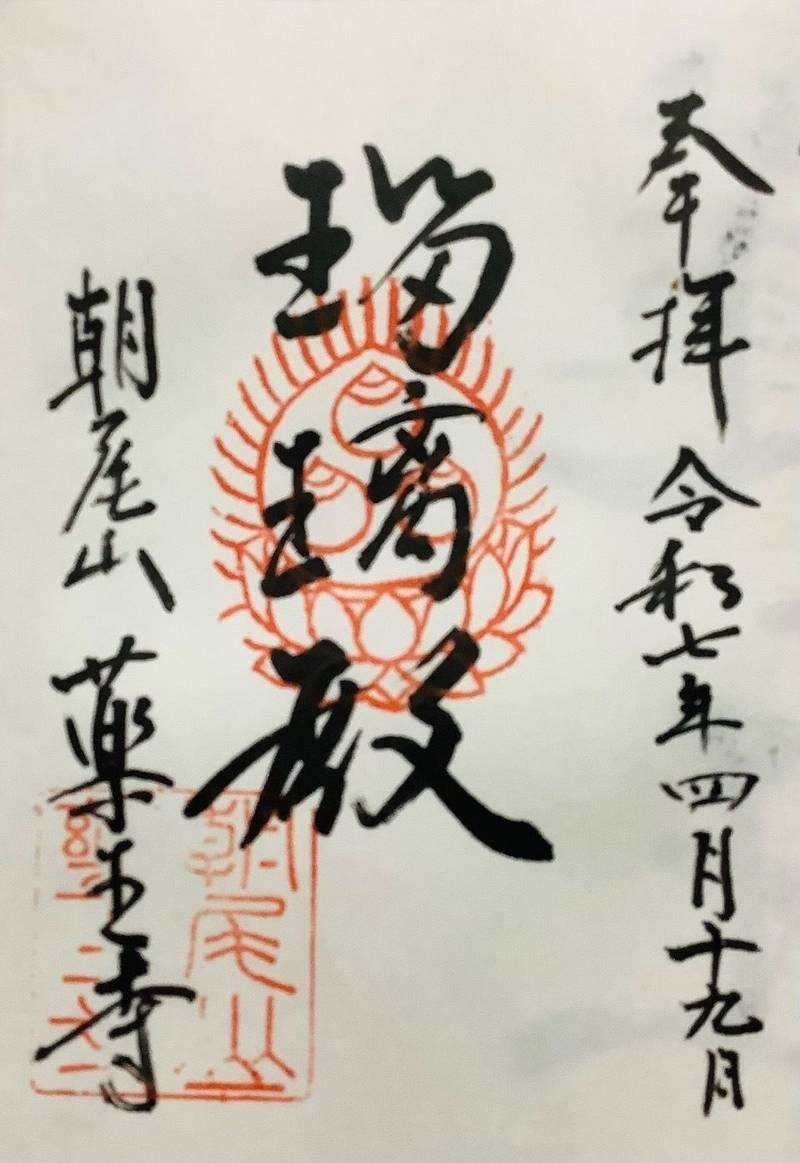 奉拝 令和七年四月十九日
瑠璃殿
朝尾山 薬王寺
朝尾山